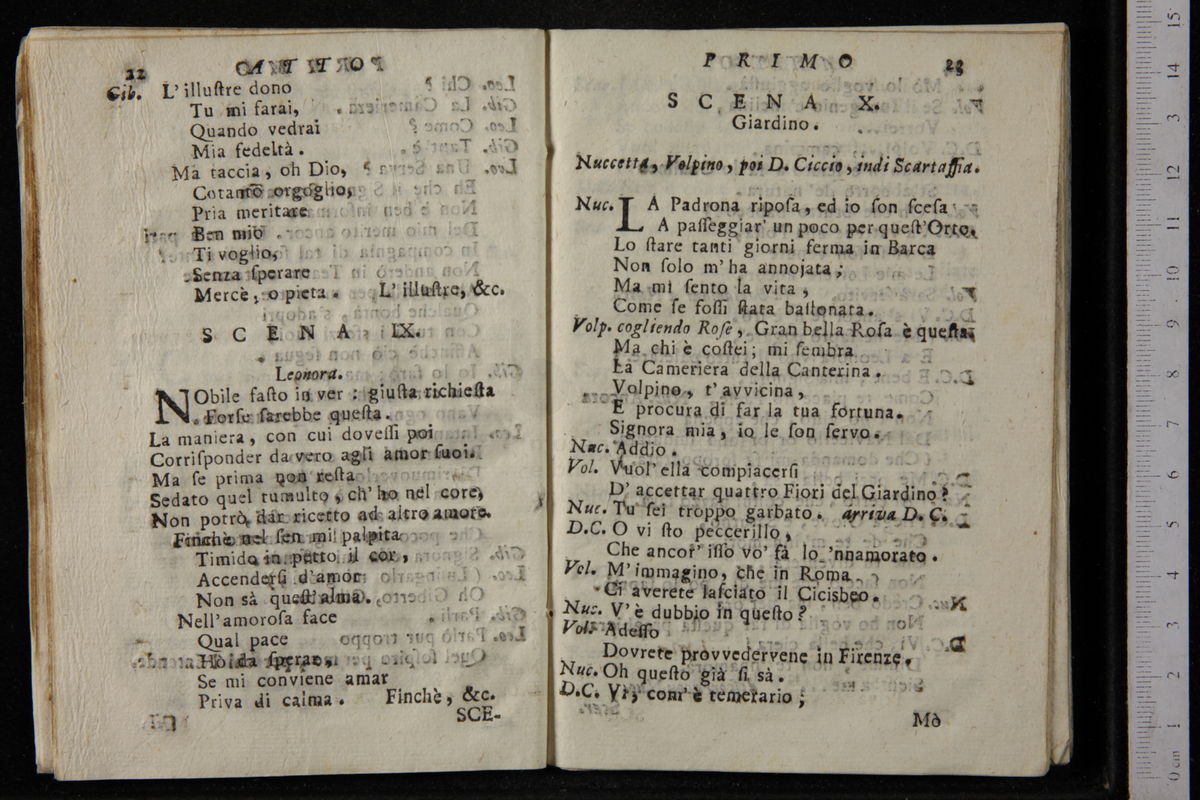 22
Gib. L' illuſtre dono
Tu mi farai,
Quando vedrai
Mia fedeltà.
Ma taccia, oh Dio,
Cotanto orgoglio,
Pria meritare
Ben mio
Ti voglio,
Senza ſperare
Mercè, o pieta. L' illuſtre, &c.
SCENA IX.
Leonora.
NObile faſto in ver : giuſta richieſta
Forſe ſarebbe queſta.
La maniera, con cui doveſſi poi
Corriſponder da vero agli amor ſuoi.
Ma ſe prima non reſta
Sedato quel tumulto, ch' ho nel core,
Non potrò dar ricetto ad altro amore.
Finchè nel ſen mi palpita
Timido in petto il cor,
Accenderſi d'amor
Non sà queſt'alma.
Nell'amoroſa face
Qual pace
Hò da ſperar,
Se mi conviene amar
Priva di calma. Finchè, &c.
SCE-
PRIMO 23
SCENA X.
Giardino.
Nuccetta, Volpino, poi D. Ciccio, indi Scartaffia.
Nuc. LA Padrona ripoſa, ed io ſon ſceſa
A paſſeggiar' un poco per queſt'Orto.
Lo ſtare tanti giorni ferma in Barca
Non ſolo m'ha annojata;
Ma mi ſento la vita,
Come ſe foſſi ſtata baſtonata.
Volp. cogliendo Roſe, Gran bella Roſa è queſta.
Ma chi è coſtei; mi ſembra
La Cameriera della Canterina.
Volpino, t'avvicina,
E procura di far la tua fortuna.
Signora mia, io le ſon ſervo.
Nuc. Addio.
Vol. Vuol' ella compiacerſi
D' accettar quattro Fiori del Giardino?
Nuc. Tu ſei troppo garbato. arriva D. C.
D.C. O vi ſto peccerillo,
Che ancor' iſſo vo' fà lo 'nnamorato.
Vol. M' immagino, che in Roma
Ci averete laſciato il Cicisbeo.
Nuc. V' è dubbio in queſto?
Vol. Adeſſo
Dovrete provvedervene in Firenze.
Nuc. Oh queſto già ſi sà.
D.C. Vi, com' è temerario;
Mò